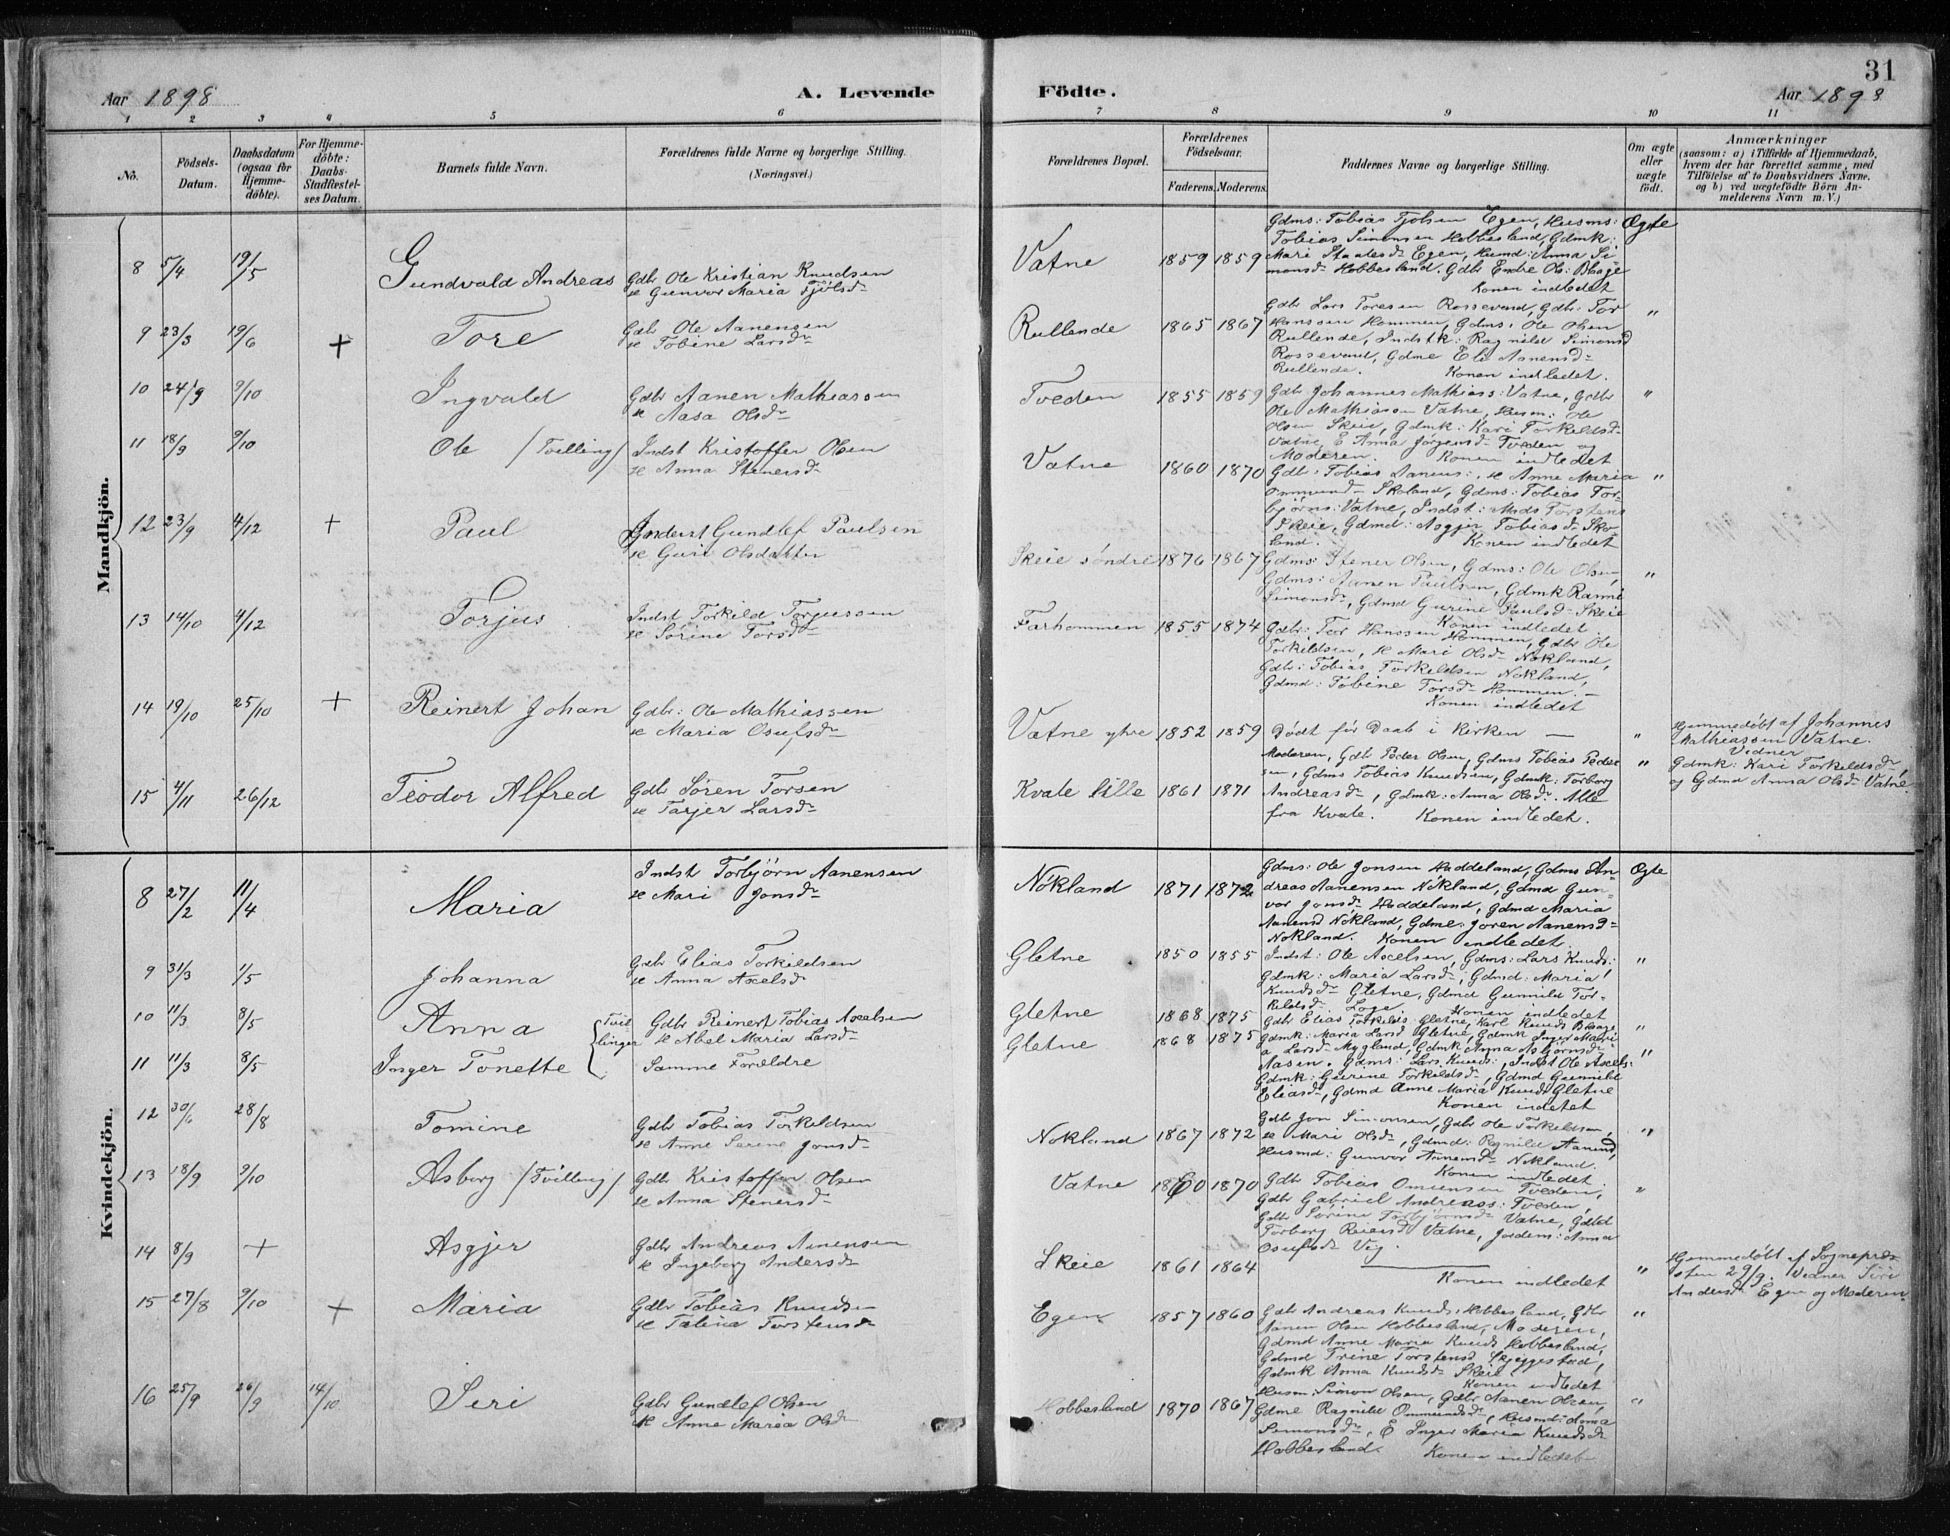 31
Aar 1898
A. Levende
Födte.
Aar 1898
1 2 3 4 5 6 7 8 9 10 11
No.
Födsels-
Datum.
Daabsdatum
(ogsaa for
Hjemme-
döbte).
For Hjemme-
döbte:
Daabs-
Stadfæstel-
ses Datum.
Barnets fulde Navn.
Forældrenes fulde Navne og borgerlige Stilling.
(Næringsvei.)
Forældrenes Bopæl.
Forældrenes
Födselsaar.
Faderens. Moderens.
Faddernes Navne og borgerlige Stilling.
Om ægte
eller
uægte
födt.
Anmærkninger
(saasom: a) i Tilfælde af Hjemmedaab,
hvem der har forrettet samme, med
Tilföielse af to Daabsvidners Navne.
og b) ved uægtefödte Börn An-
melderens Navn m. V.)
Mandkjön.
8 5/4 19/5 Gundvald Andreas
Gdbr Ole Kristian Knudsen
& Gunvor Maria Fjølsd
Vatne 1859 1859
Gdms: Tobias Fjølsen Egen, Husms:
Tobias Simonsen Hobbesland, Gdmk:
Mari Staalesd Egen, Husmd: Anna Si
monsd Hobbesland. Gdbr Endre Ols: Blaage
Konen indledet
Ægte
9 23/3 19/6 + Tore
Gdbr Ole Aanensen
& Tobine Larsd
Rullende 1865 1867
Gdbr Lars Toresen Rossevand, Gdbr: Tor
Hanssen Hommen, Gdms: Ole Olsen
Rullende, Indstk: Ragnild Simonsd
Rossevand, Gdme Eli Aanensd
Rullende. Konen indledet.
"
10 24/9 9/10 Ingvald
Gdbr Aanen Mathiassen
& Aasa Olsd
Tveden 1855 1859
Gdbr Johannes Mathiass: Vatne, Gdbr
Ole Mathiassen Vatne, Husm: Ole
Olsen Skeie, Gdmk: Kari Torkildsd
Vatne, E Anna Jørgensd Tveden og
Moderen. Konen indledet
"
11 18/9 9/10 Ole (Tvilling)
Indst Kristoffer Olsen
& Anna Stenersd
Vatne 1860 1870
Gdb: Tobias Aanens:, & Anne Maria
Ommundsd Skoland, Gdms: Tobias Tor-
bjørns: Vatne, Indst: Mads Torstens
Skeie, Gdmd: Asgjer Tobiasd Sko-
land. Konen indledet
"
12 23/9 4/12 + Paul
Inderst Gundlef Paulsen
& Guri Olsdatter
Skeie søndre 1876 1867
Gdms: Stener Olsen, Gdms: Ole Olsen,
Gdms: Aanen Paulsen, Gdmk Rannei
Simonsd, Gdmd Gurine Paulsd Skeie
Konen indledet.
"
13 14/10 4/12 Torjus
Indst Torkild Torjussen
& Sørine Torsd
Farhommen 1855 1874
Gdbr: Tor Hanssen Hommen, Gdbr Ole
Torkildsen, & Mari Olsd Nøkland,
Gdbr: Tobias Torkildsen Nøkland,
Gdmd: Tobine Torsd Hommen. —
Konen indledet
14 19/10 25/10 + Reinert Johan
Gdbr: Ole Mathiassen
& Maria Osufsd
Vatne ytre 1852 1859
Dødt før Daab i Kirken —
"
Hjemmedøbt af Johannes
Mathiassen Vatne.
Vidner
Gdmk: Kari Torkildsd,
og Gdmd Anna Olsd Vatne.
15 4/11 26/12 Teodor Alfred
Gdbr Søren Torsen
& Tarjer Larsd
Kvale lille 1861 1871
Moderen, Gdb Peder Olsen, Gdms Tobias Peder
sen, Gdms Tobias Knudsen, Gdmk: Torborg
Andreasd, Gdmk: Anna Olsd. Alle
fra Kvale. Konen indledet.
"
Kvindekjön.
8 27/2 11/4 Maria
Indst Torbjørn Aanensen
& Mari Jonsd
Nøkland 1871 1872
Gdms: Ole Jonsen Haddeland, Gdms An-
dreas Aanensen Nøkland, Gdmd Gun-
vor Jonsd Haddeland, Gdmd Maria
Aanensd Nøkland, Gdme: Joren Aanensd
Nøkland. Konen indledet.
Ægte
9 31/3 1/5 Johanna
Gdbr Elias Torkildsen
& Anna Axelsd
Gletne 1850 1855
Indst: Ole Axelsen, Gdms: Lars Knuds:
Gdmk: Maria Larsd, Gdmd: Maria
Knudsd Gletne, Gdmd Gunnild Tor-
kildsd Loge. Konen indledet
"
10 11/3 8/5 Anna
Tvil
linger
Gdbr Reinert Tobias Axelsen
& Abel Maria Larsd
Gletne 1868 1875
Gdbr Elias Torkilds: Gletne, Karl Knuds Blaage
Gdmk: Maria Larsd Gletne, Gdmk Inger Mari
a Larsd Mygland, Gdmk Anna Asbjørnsd
"
11 11/3 8/5 Inger Tonette
Samme Forældre
Gletne 1868 1875
Aasen. Gdms: Lars Knuds:, Indst Ole Axels:
Gdmk: Gurine Torkildsd, Gdmd Gunnild
Eliasd, Gdmd Anne Maria Knudsd Gletne
Konen indledet
"
12 30/6 28/8 Tomine
Gdbr Tobias Torkildsen
& Anne Serine Jonsd
Nøkland 1867 1872
Gdb Jon Simonsen, Gdbr Ole Torkildsen,
& Mari Olsd, Gdmd: Ragnild Aanensd,
Husmd: Gunvor Aanensd Nøkland.
Konen indledet.
"
13 18/9 9/10 Asborg (Tvilling)
Gdbr Kristoffer Olsen
& Anna Stenersd
Vatne 1860 1870
Gdbr Tobias Omunsen Tveden,
Gdbr Gabriel Andreass: Tveden,
Gdbr Sørine Torbjørnsd Vatne, Gdbd
Torborg Reiersd Vatne, Jordem: Anna
Osufsd Vig.
Konen indledet
"
14 8/9 + Asgjer
Gdbr Andreas Aanensen
& Ingeborg Andersd
Skeie 1861 1864
"
Hjemmedøbt af Sognepræ-
sten 29/9. Vidner Siri
Andersd Egen og Moderen
15 27/8 9/10 + Maria
Gdbr Tobias Knudsen
& Talina Torstensd
Egen 1857 1860
Gdb Andreas Knuds: Hobbesland, Gdbr
Aanen Olsen Hobbesland, Moderen,
Gdmd Anne Maria Knudsd Hobbesland,
Gdmd Trine Torstensd Skjeggestad,
Gdmk Anna Knudsd Skeie
Konen indledet
"
16 25/9 26/9 14/10 Seri
Gdbr Gundlef Olsen
& Anne Maria Olsd
Hobbesland 1870 1867
Husm: Simon Olsen, Gdbr Aanen Olsen,
Gdme Ragnild Ommundsd, Husmd: Anna
Simonsd, E Inger Maria Knudsd
Hobbesland. Konen indledet
"